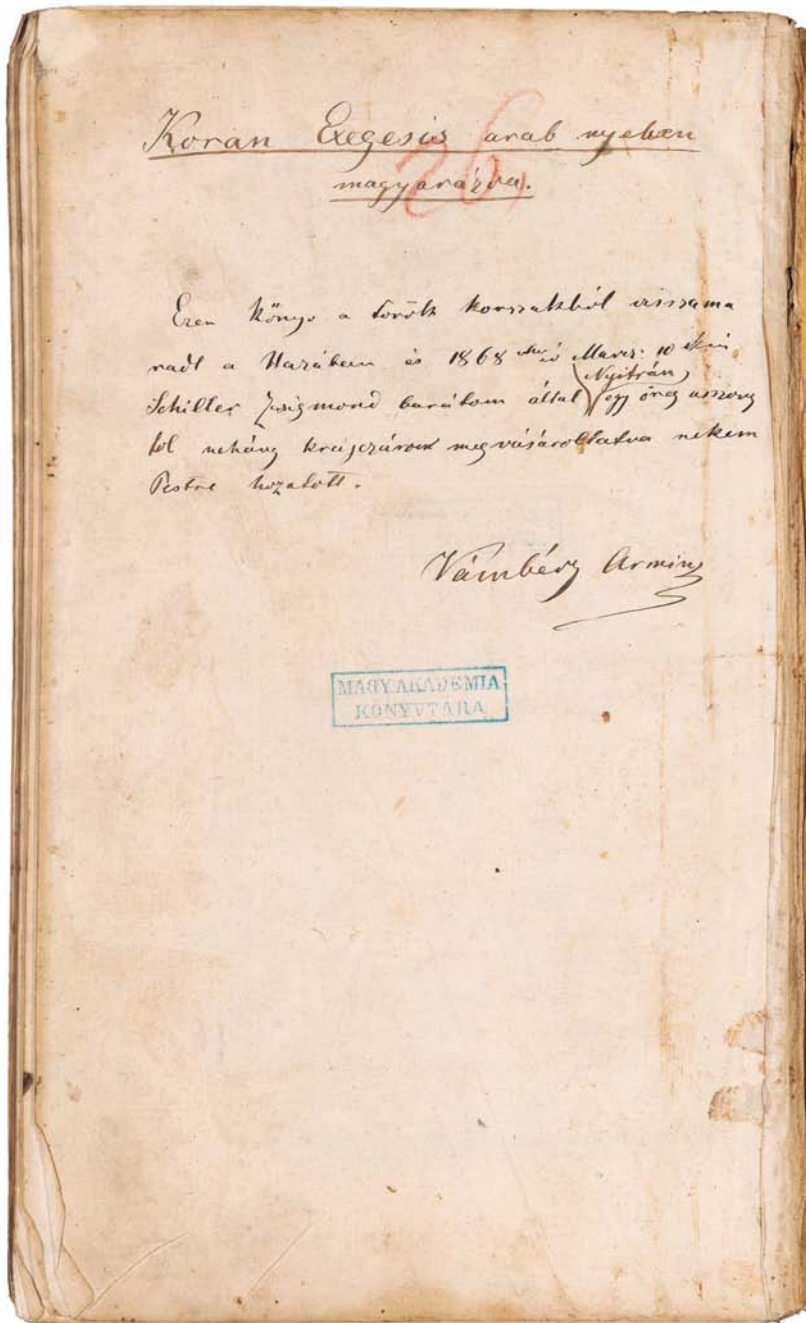 Koran Exegesis arab nyelven
magyarázva.
26,
Ezen könyv a török korszakból visszama
radt a Hazában és 1868 Marcz: 10
Schiller Zsigmond barátom által Nyitrán egy öreg asszony
tól nehány krajczáron megvásároltatva nekem
Pestre hozatott.
Vámbéry Armin
MAGY. AKADEMIA
KÖNYVTÁRA